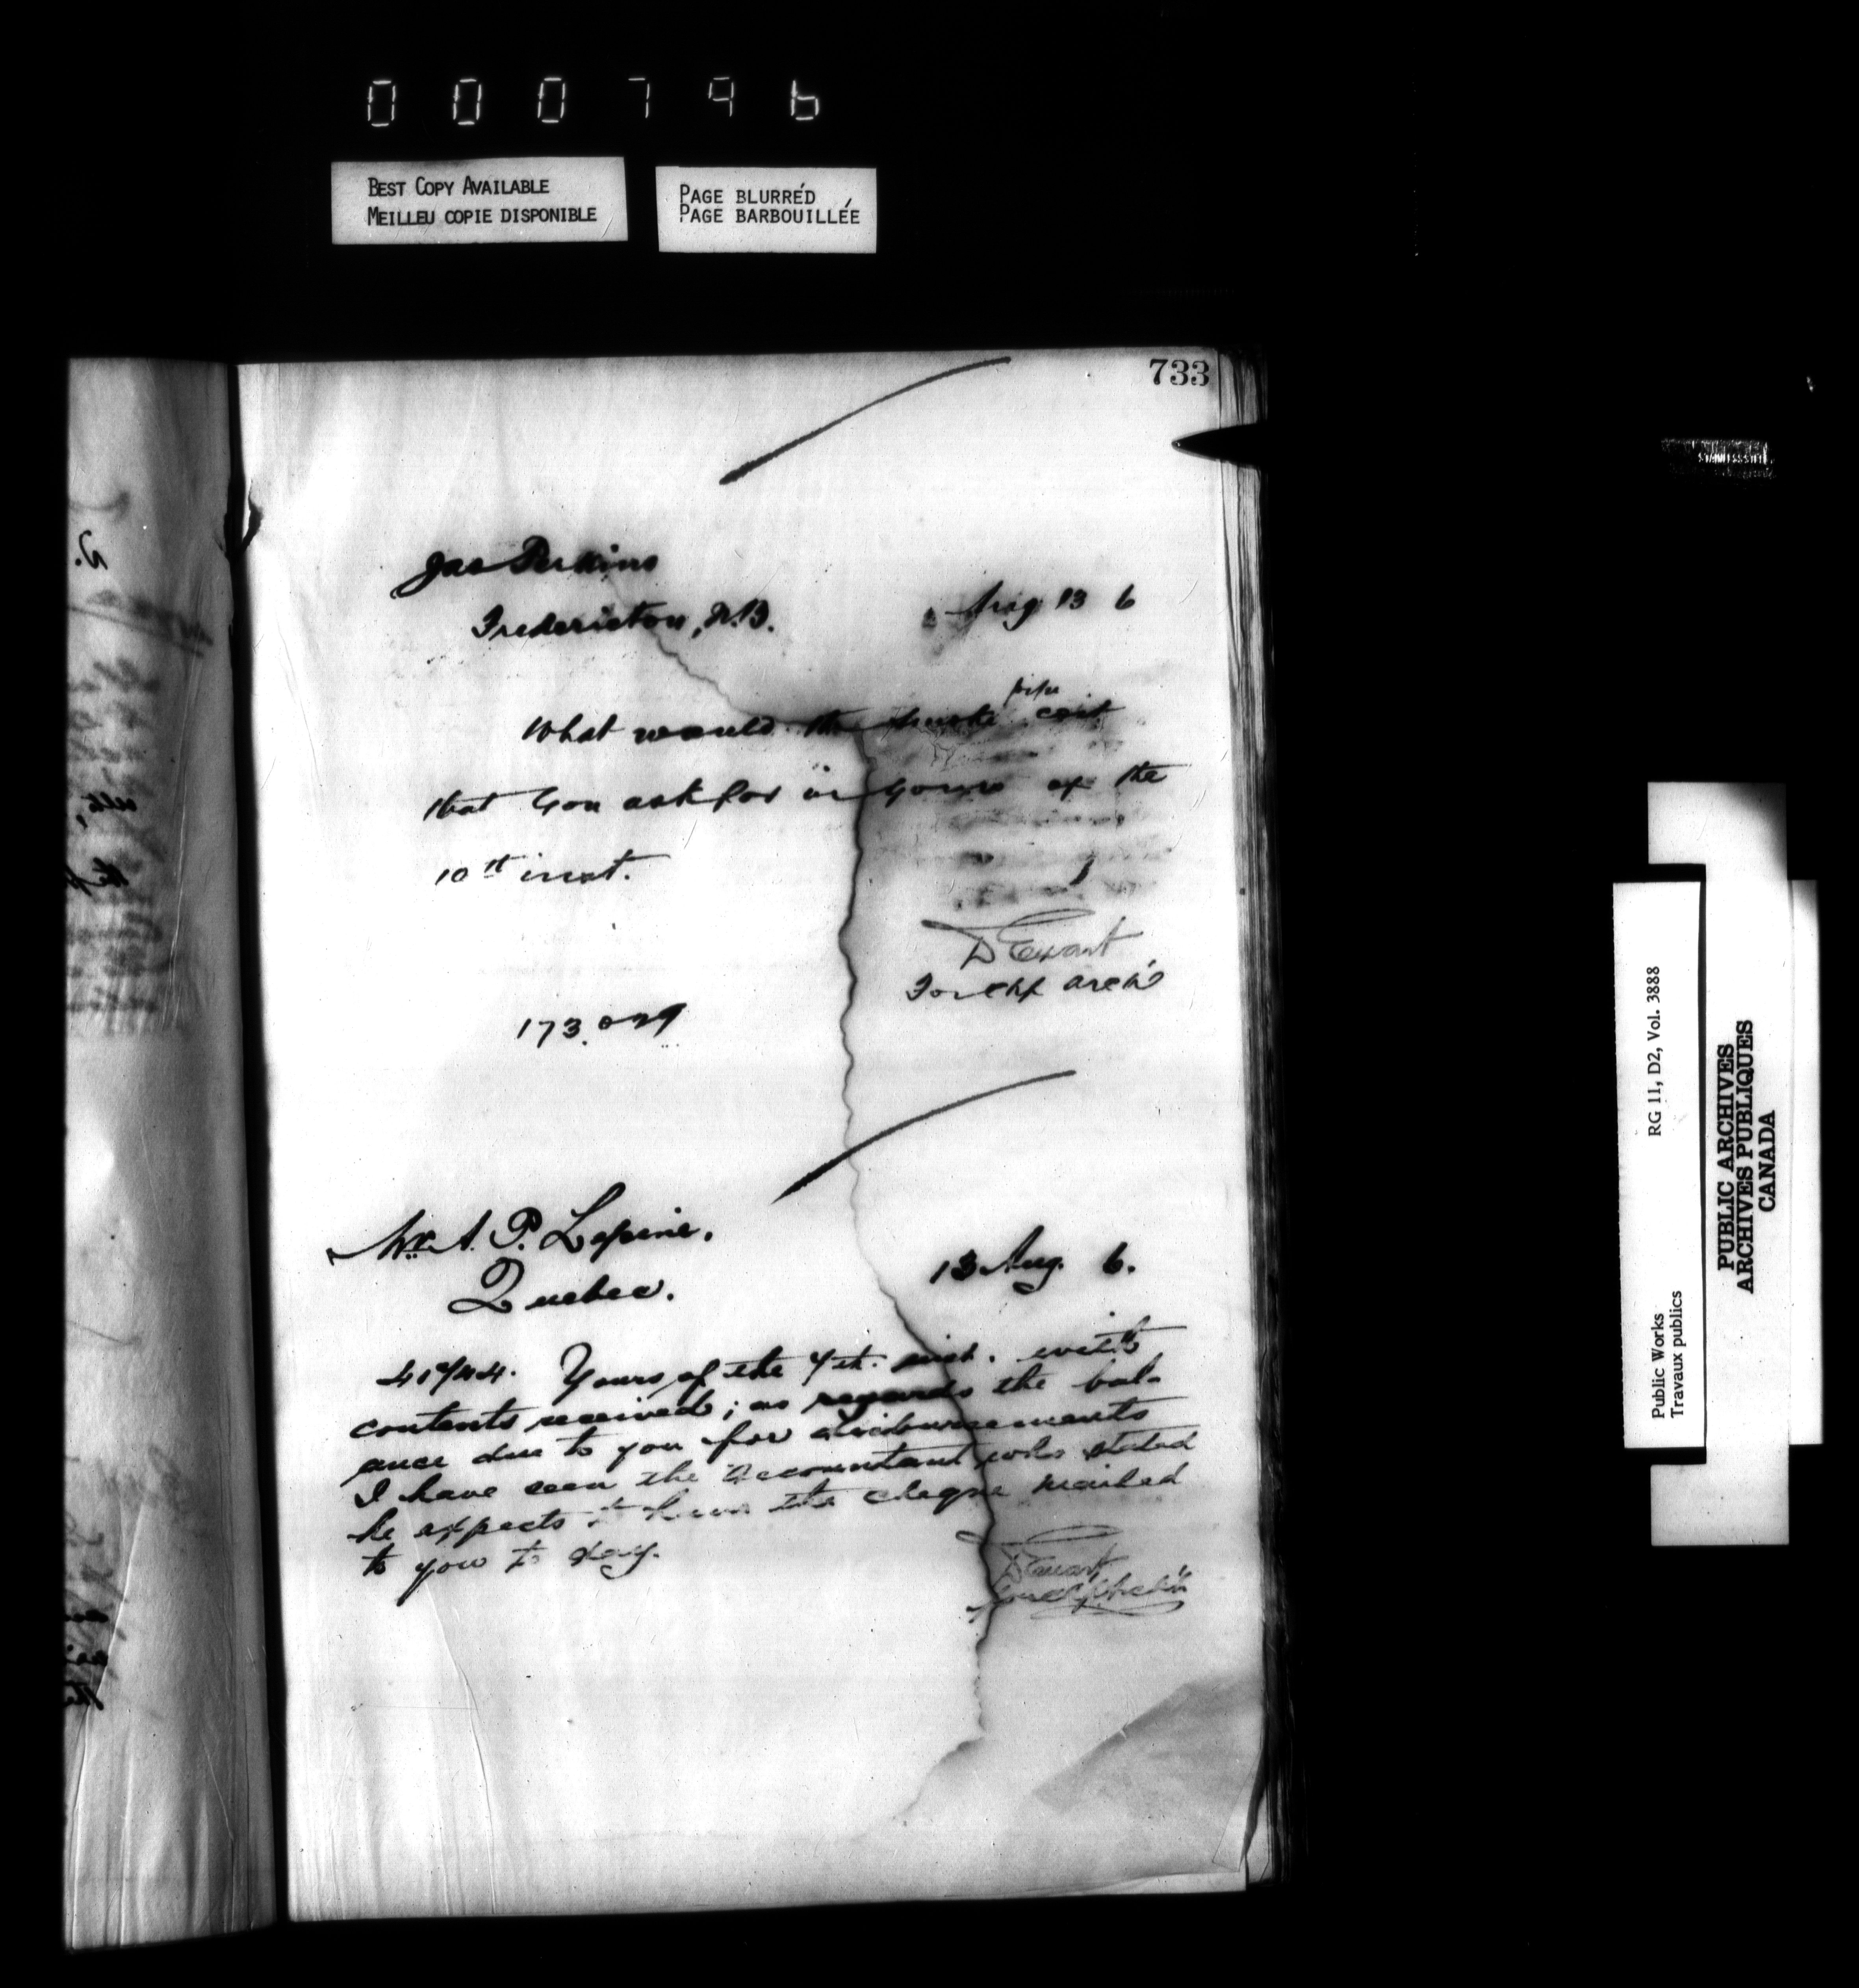 000796
BEST COPY AVAILABLE
MEILLEU COPIE DISPONIBLE
PAGE BLURRÉD
PAGE BARBOUILLÉE
733
Jas Perkins
Fredericton, N.B.
Aug 13 6
pipe
What would the smoke cost
that you ask for in yours of the
10th inst.
D Ewart
For chf arch't
173.029
Mr. A. P. Lepine.
Quebec.
13 Aug. 6.
Yours of the 7th. inst. with
contents received; as regards the bal-
ance due to you for disbursements
I have seen the Accountant who stated
he expects to have the cheque mailed
to you to day.
D Ewart
RG 11, D2, Vol. 3888
Public Works
Travaux publics
PUBLIC ARCHIVES
ARCHIVES PUBLIQUES
CANADA